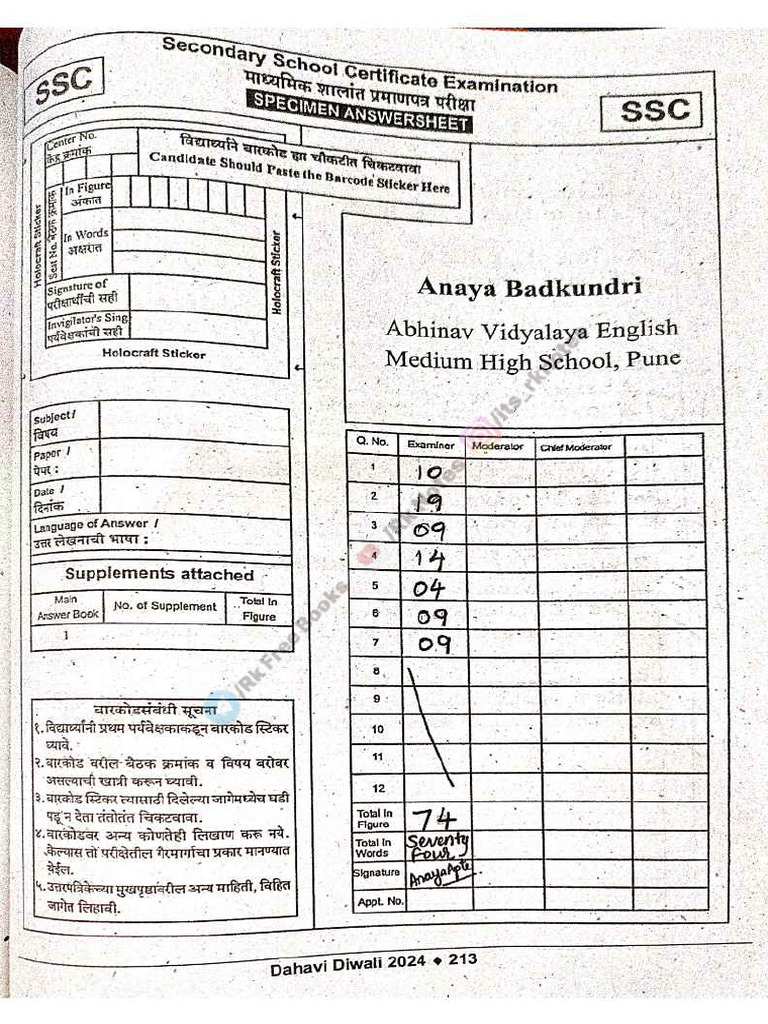 Secondary School Certificate Examination
माध्यमिक शालांत प्रमाणपत्र परीक्षा
SPECIMEN ANSWERSHEET
SSC
SSC
Center No.
केंद्र क्रमांक
विद्यार्थ्याने बारकोड ह्या चौकटीत चिकटवावा
Candidate Should Paste the Barcode Sticker Here
Holocraft Sticker
Seat No. बैठक क्रमांक
In Figure
अंकात
In Words
अक्षरात
Holocraft Sticker
Signature of
परीक्षार्थीची सही
Invigilator's Sing
पर्यवेक्षकांची सही
Holocraft Sticker
Anaya Badkundri
Abhinav Vidyalaya English
Medium High School, Pune
Subject /
विषय
Paper /
पेपर :
Date /
दिनांक
Language of Answer /
उत्तर लेखनाची भाषा :
Supplements attached
Main
Answer Book
No. of Supplement
Total In
Figure
1
Q. No. Examiner Moderator Chief Moderator
1 10
2 19
3 09
4 14
5 04
6 09
7 09
8
9
10
11
12
Total In
Figure
74
Total In
Words
Seventy
Four
Signature
Anaya Apte
Appt. No.
बारकोडसंबंधी सूचना
१. विद्यार्थ्यांनी प्रथम पर्यवेक्षकाकडून बारकोड स्टिकर
घ्यावे.
२. बारकोड वरील बैठक क्रमांक व विषय बरोबर
असल्याची खात्री करून घ्यावी.
३. बारकोड स्टिकर त्यासाठी दिलेल्या जागेमध्येच घडी
पडू न देता तंतोतंत चिकटवावा.
४. बारकोडवर अन्य कोणतेही लिखाण करू नये.
केल्यास तो परीक्षेतील गैरमार्गाचा प्रकार मानण्यात
येईल.
५. उत्तरपत्रिकेच्या मुखपृष्ठांवरील अन्य माहिती, विहित
जागेत लिहावी.
/Rk Free Books
/Rk Notes
/its_rknotes
Dahavi Diwali 2024 ◆ 213